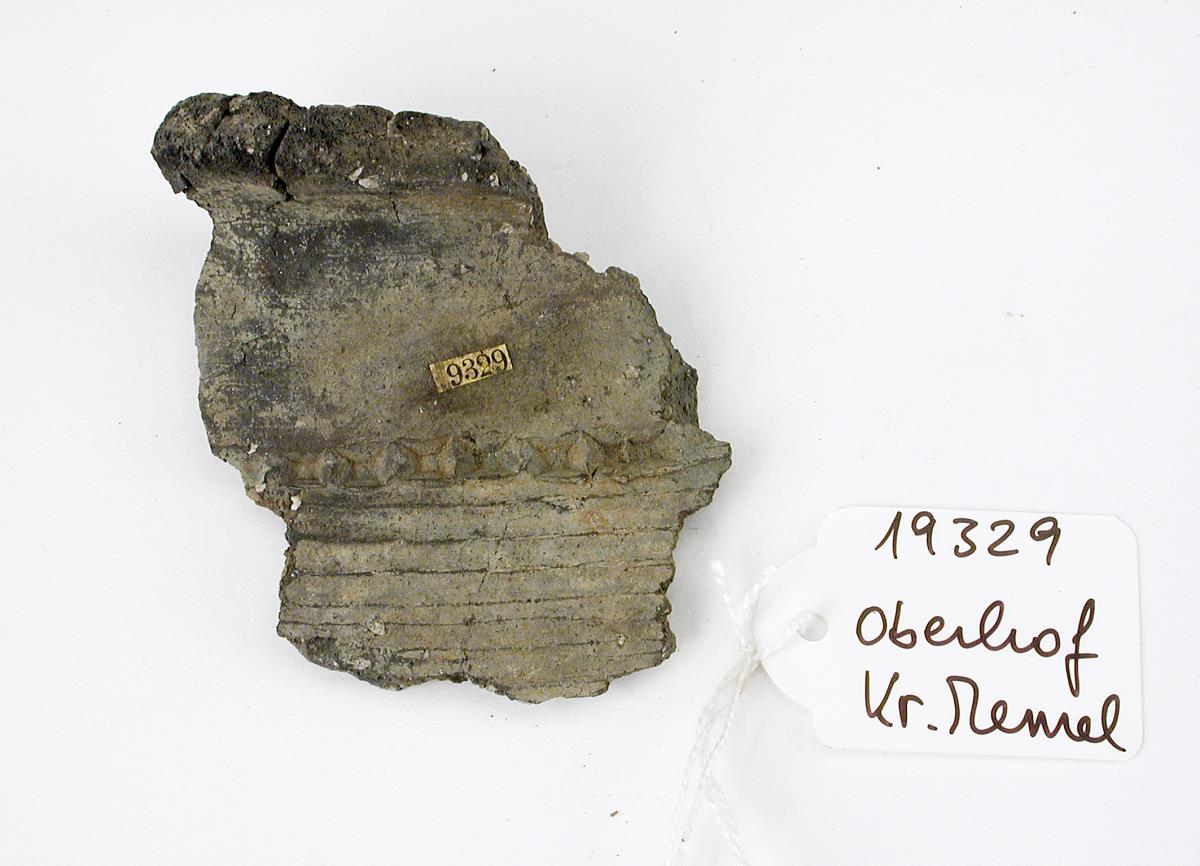 9329
19329
Oberhof
Kr. Memel